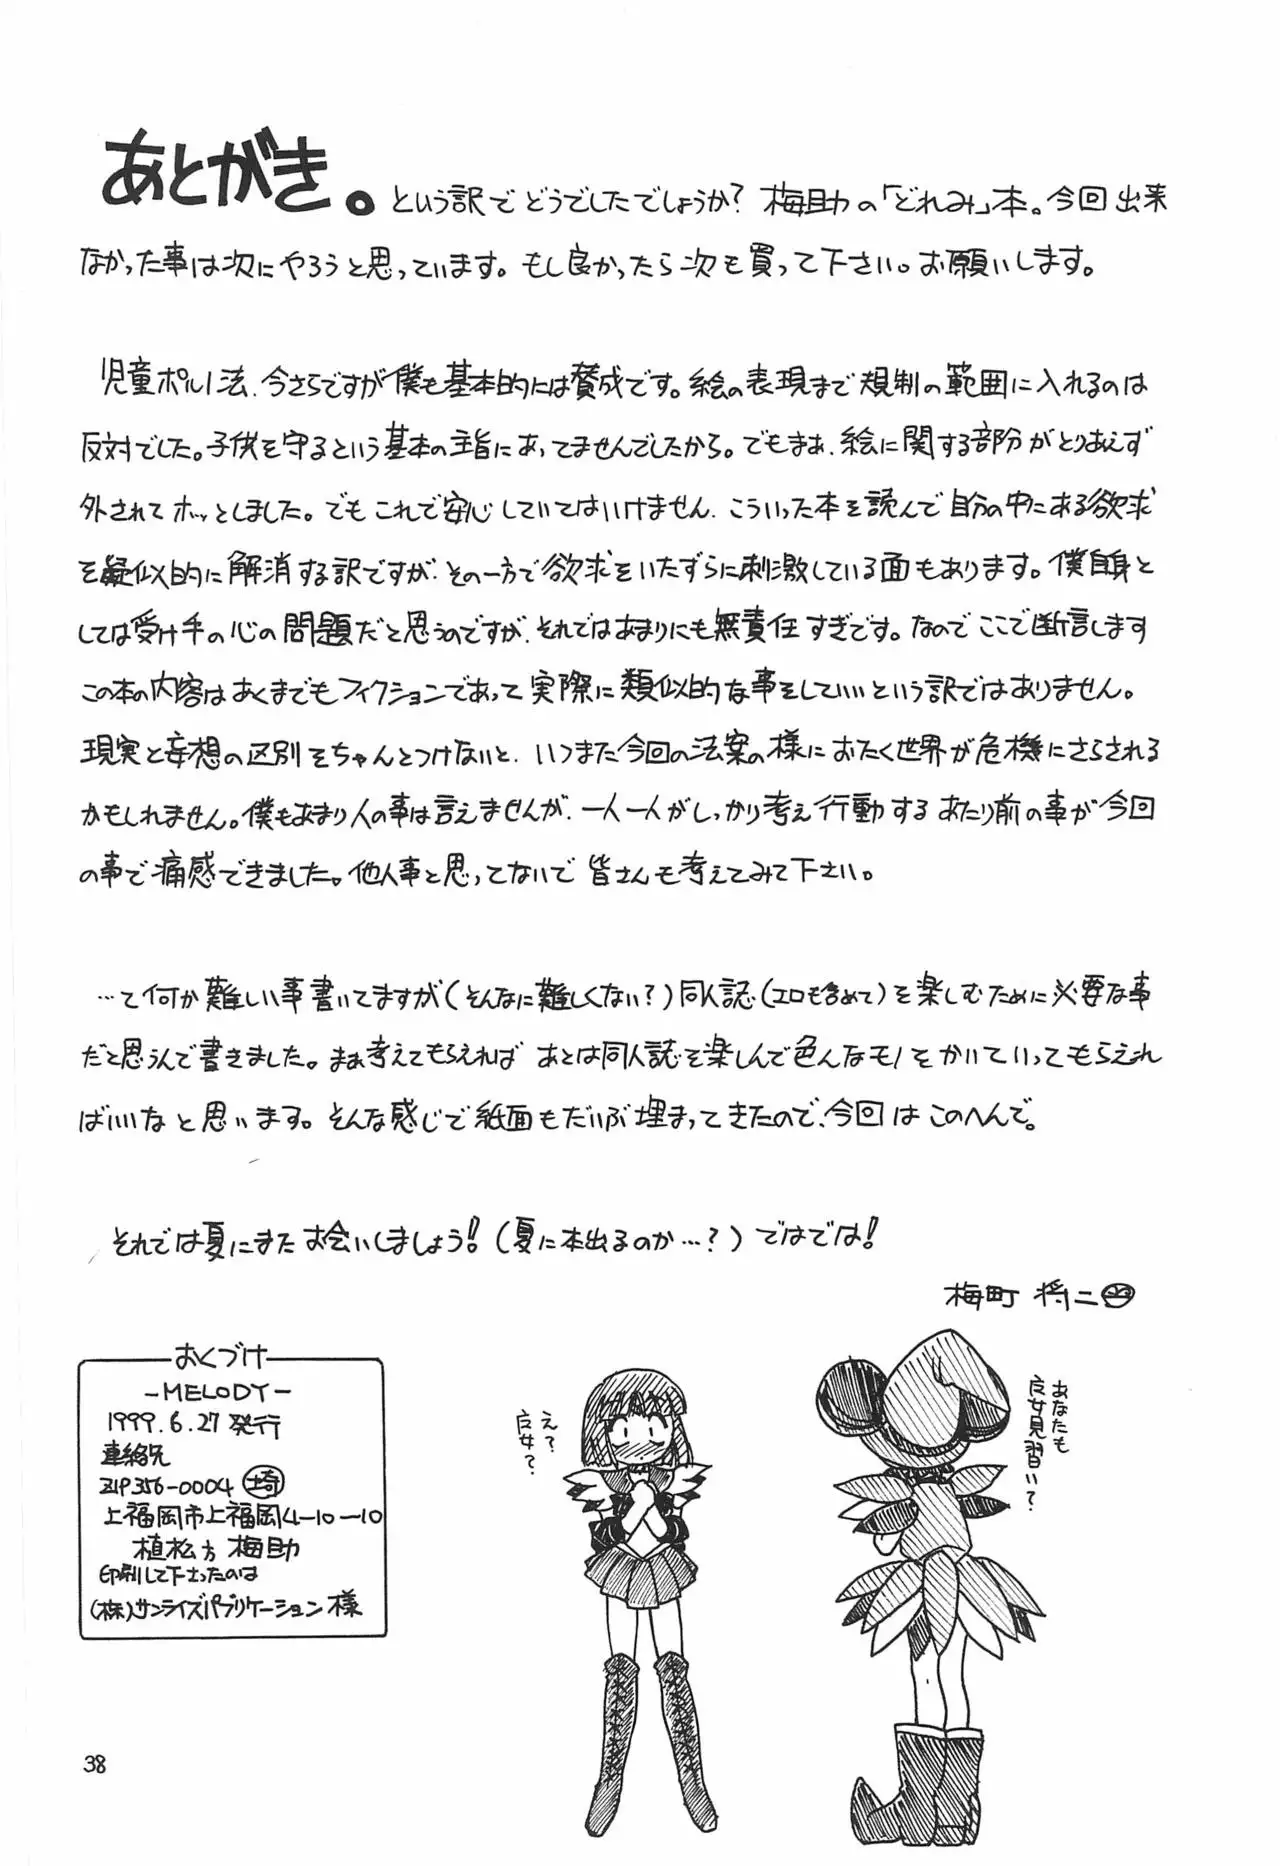 あとがき。という訳でどうでしたでしょうか？梅助の「どれみ」本。今回出来
なかった事は次にやろうと思っています。もし良かったら次も買って下さい。お願いします。
児童ポルノ法、今さらですが僕も基本的には賛成です。絵の表現まで規制の範囲に入れるのは
反対でした。子供を守るという基本の主旨にあってませんでしたから。でもまぁ、絵に関する部分がとりあえず
外されてホッとしました。でもこれで安心していてはいけません、こういった本を読んで自分の中にある欲求
を疑似的に解消する訳ですが、その一方で欲求をいたずらに刺激している面もあります。僕自身と
しては受け手の心の問題だと思うのですが、それではあまりにも無責任すぎです。なのでここで断言します
この本の内容はあくまでもフィクションであって実際に類似的な事をしていいという訳ではありません。
現実と妄想の区別をちゃんとつけないと、いつまた今回の法案の様におたく世界が危機にさらされる
かもしれません。僕もあまり人の事は言えませんが、一人一人がしっかり考え行動するあたり前の事が今回
の事で痛感できました。他人事と思ってないで皆さんも考えてみて下さい。
…て何か難しい事書いてますが（そんなに難しくない？）同人誌（エロも含めて）を楽しむために必要な事
だと思うんで書きました。まぁ考えてもらえれば あとは同人誌を楽しんで色んなモノをかいていってもらえれ
ばいいなと思います。そんな感じで紙面もだいぶ埋まってきたので、今回はこのへんで。
それでは夏にまたお会いしましょう！（夏に本出るのか…？）ではでは！
梅町 将二
おくづけ
－MELODY－
1999.6.27発行
連絡先
ZIP356-0004 埼
上福岡市上福岡4-10-10
植松方 梅助
印刷して下さったのは
（株）サンライズパブリケーション様
え？
魔女？
あなたも
魔女見習い？
38